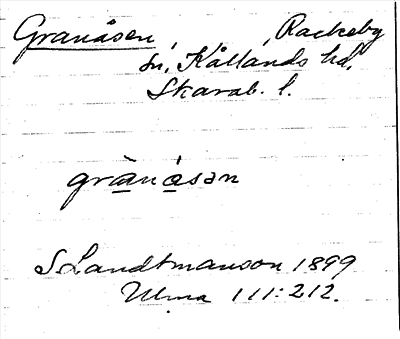 Granåsen Rackeby
sn, Kållands hd.
Skarab. l.
grànásən
S. Landtmanson 1899
Ulma 111:212.